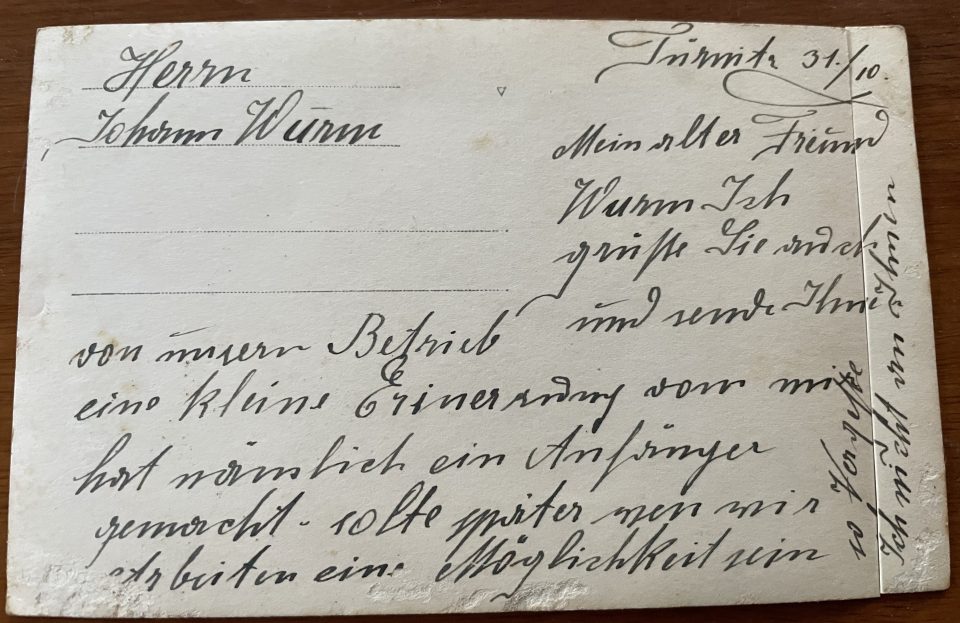 Herrn
Johann Wurm
Türnitz 31./10.
Mein alter Freund
Wurm Ich
grüsse Sie auch
und sende Ihne
von unsern Betrieb
eine kleine Erinerung von mi
hat nämlich ein Anfänger
gemacht. solte später wen wir
Arbeiten eine Möglichkeit sein
so Vergesse
Ich nicht an Ihnen